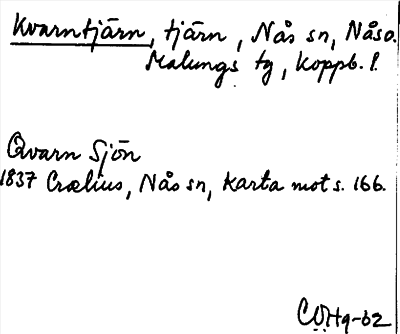 Kvarntjärn, tjärn, Nås sn, Nås o.
Malungs tg, Koppb. l.
Qvarn Sjön
1837 Crælius, Nås sn, Karta mot s. 166.